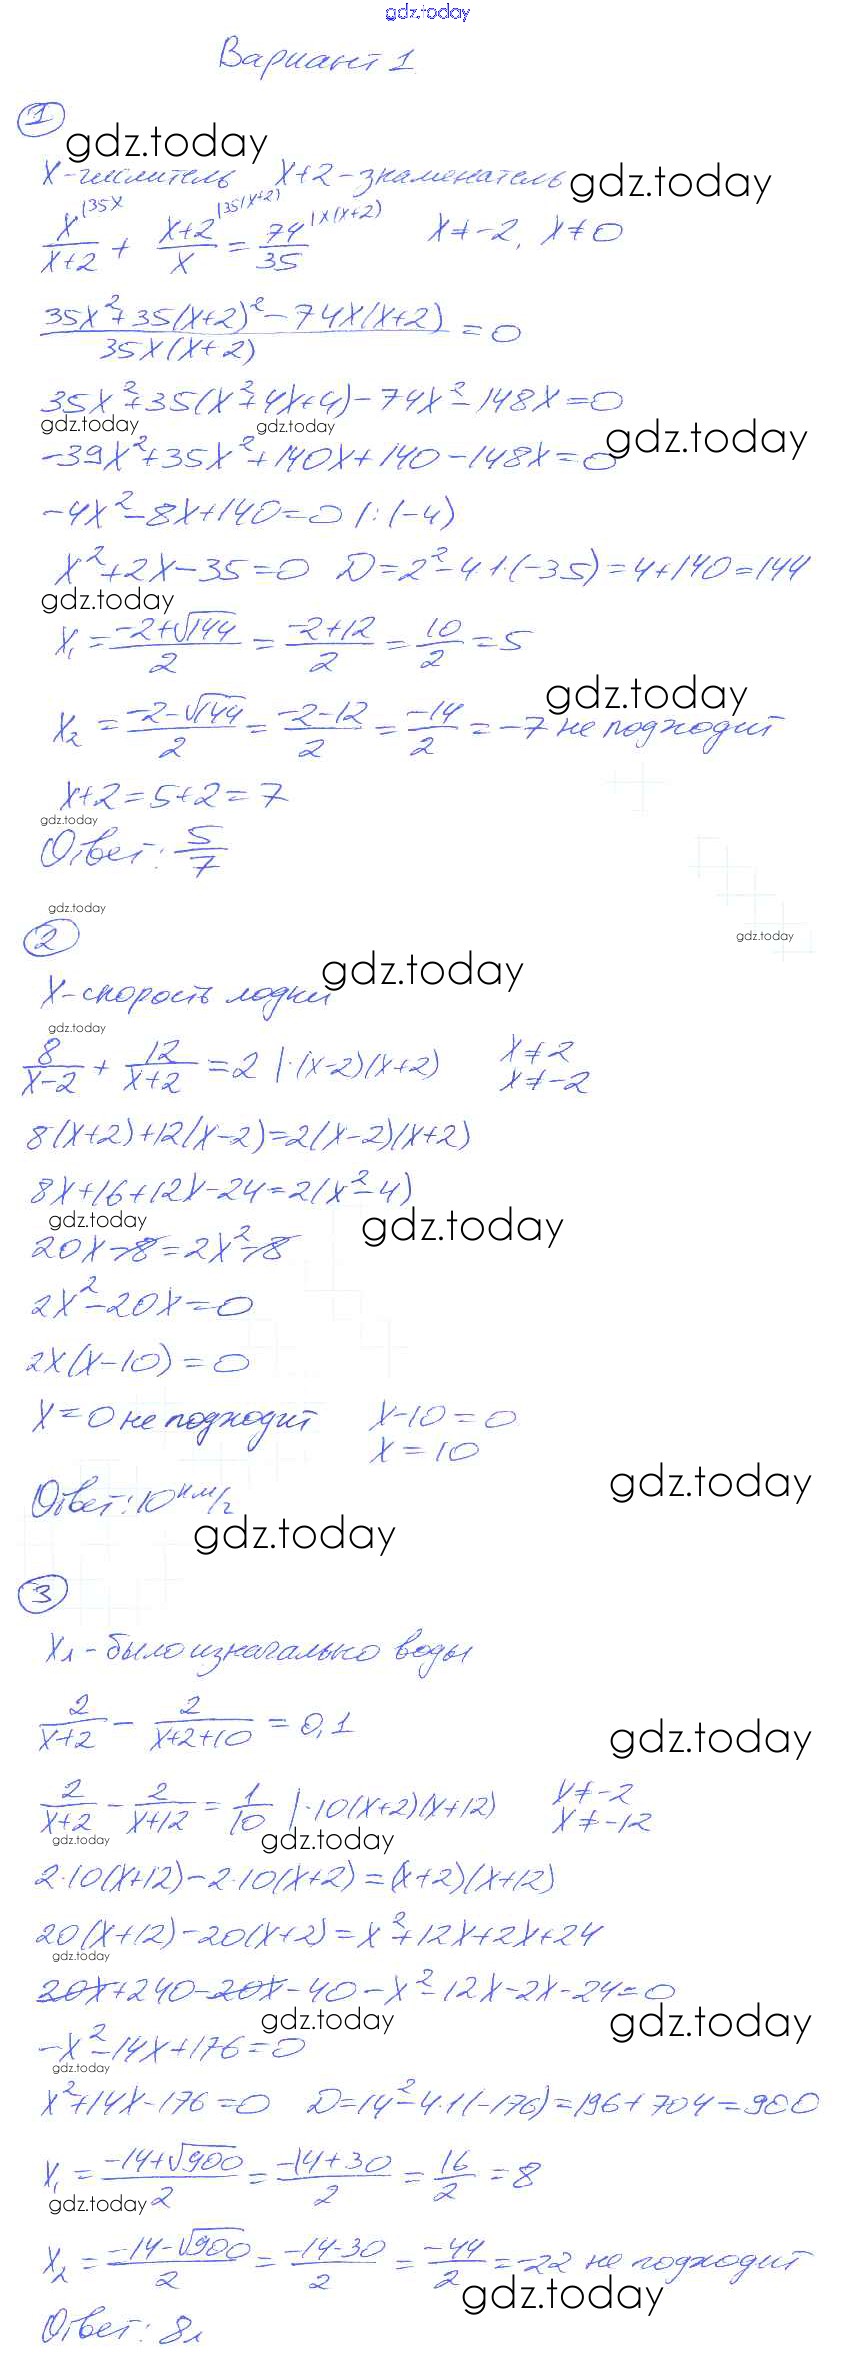 gdz.today
Вариант 1
1
gdz.today
x-числитель x+2-знаменатель gdz.today
x/(x+2) |35x + (x+2)/x |35(x+2) = 74/35 |x(x+2) x≠-2, x≠0
(35x²+35(x+2)²-74x(x+2))/(35x(x+2)) = 0
35x²+35(x²+4x+4)-74x²-148x=0
gdz.today gdz.today gdz.today
-39x²+35x²+140x+140-148x=0
-4x²-8x+140=0 |:(-4)
x²+2x-35=0 D=2²-4·1·(-35)=4+140=144
gdz.today
x₁=(-2+√144)/2=(-2+12)/2=10/2=5
gdz.today
x₂=(-2-√144)/2=(-2-12)/2=-14/2=-7 не подходит
x+2=5+2=7
gdz.today
Ответ: 5/7
gdz.today
2
gdz.today
gdz.today
x-скорость лодки
gdz.today
8/(x-2)+12/(x+2)=2 |·(x-2)(x+2) x≠2
x≠-2
8(x+2)+12(x-2)=2(x-2)(x+2)
8x+16+12x-24=2(x²-4)
gdz.today gdz.today
20x-8=2x²-8
2x²-20x=0
2x(x-10)=0
x=0 не подходит x-10=0
x=10
gdz.today
Ответ: 10 км/г
gdz.today
3
xл-было изначально воды
2/(x+2)-2/(x+2+10)=0,1
gdz.today
2/(x+2)-2/(x+12)=1/10 |·10(x+2)(x+12) x≠-2
x≠-12
gdz.today gdz.today
2·10(x+12)-2·10(x+2)=(x+2)(x+12)
20(x+12)-20(x+2)=x²+12x+2x+24
gdz.today
20x+240-20x-40-x²-12x-2x-24=0
gdz.today gdz.today
-x²-14x+176=0
gdz.today
x²+14x-176=0 D=14²-4·1(-176)=196+704=900
x₁=(-14+√900)/2=(-14+30)/2=16/2=8
gdz.today
x₂=(-14-√900)/2=(-14-30)/2=-44/2=-22 не подходит
gdz.today
Ответ: 8л